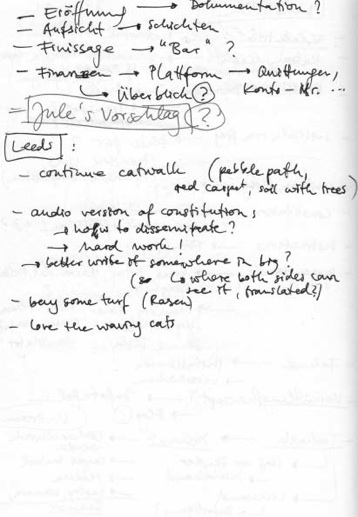 – Eröffnung → Dokumentation?
– Aufsicht → Schichten
– Finissage → "Bar" ?
– Finanzen → Plattform → Quittungen,
↳ Überblick (?) Konto-Nr. ...
= Jule's Vorschlag (?)
Leeds :
– continue catwalk (pebble path,
red carpet, soil with trees)
– audio version of constitution;
→ how to disseminate?
→ hard work!
→ better write it somewhere in big?
(so ↳ where both sides can
see it, translated?)
– buy some turf (Rasen)
– love the waving cats